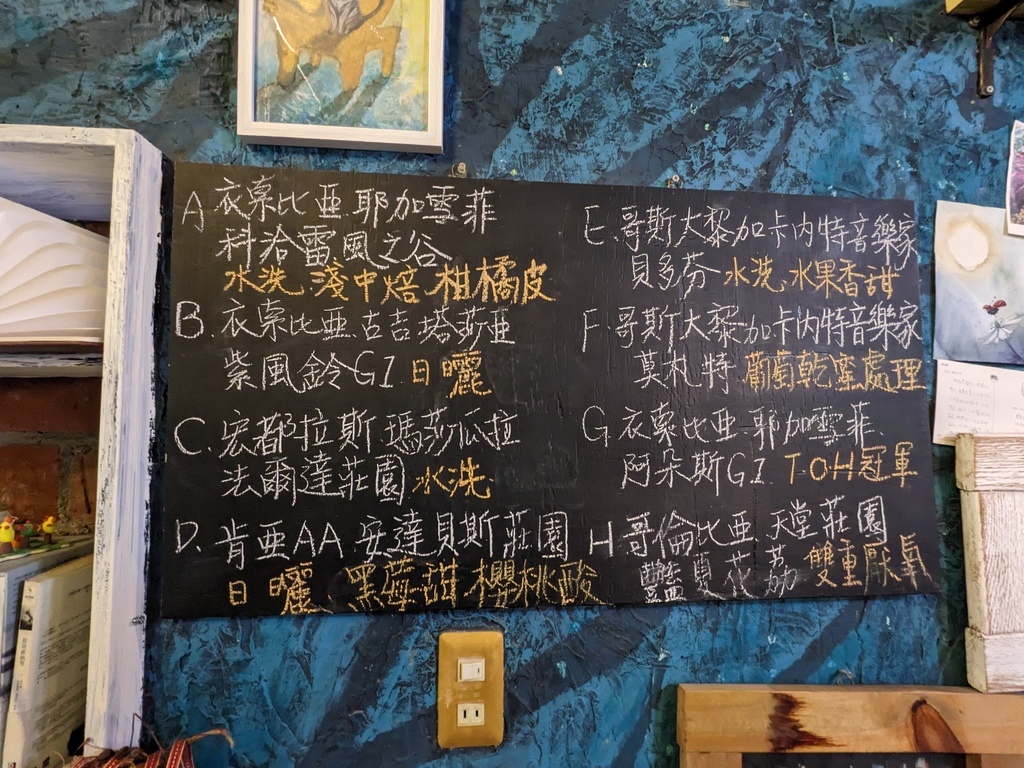 A. 衣索比亜 耶加雪菲
科洽雷.風之谷
水洗 淺中焙 柑橘皮
B. 衣索比亜.古吉.塔莎亜
紫風鈴G1 日曬
C. 宏都拉斯.瑪莎瓜拉
法爾達莊園 水洗
D. 肯亜AA.安達貝斯莊園
日曬 黑莓甜 櫻桃酸
E. 哥斯大黎加卡內特音樂家
貝多芬 水洗.水果香甜
F. 哥斯大黎加卡內特音樂家
莫札特 葡萄乾蜜處理
G. 衣索比亜 耶加雪菲
阿朵斯G1. T.O.H冠軍
H 哥倫比亜.天堂莊園
豔夏花荔 雙重厭氧